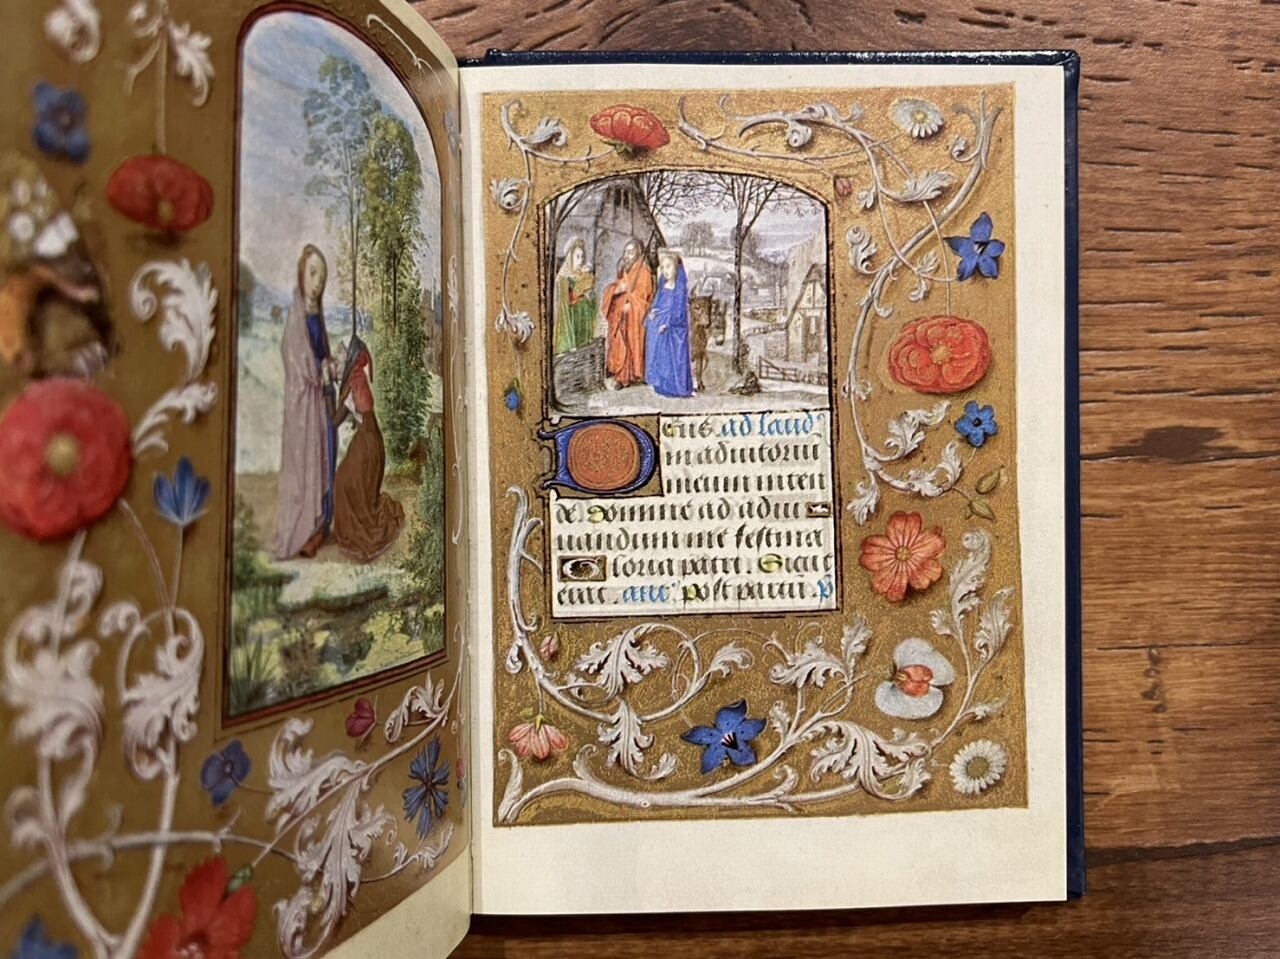 Deus. ad laud
in adiutoriū
meum inten
de. Domine ad adiu
uandum me festina
Gloria patri. Sicut
erat. anc. Post partū. p̄